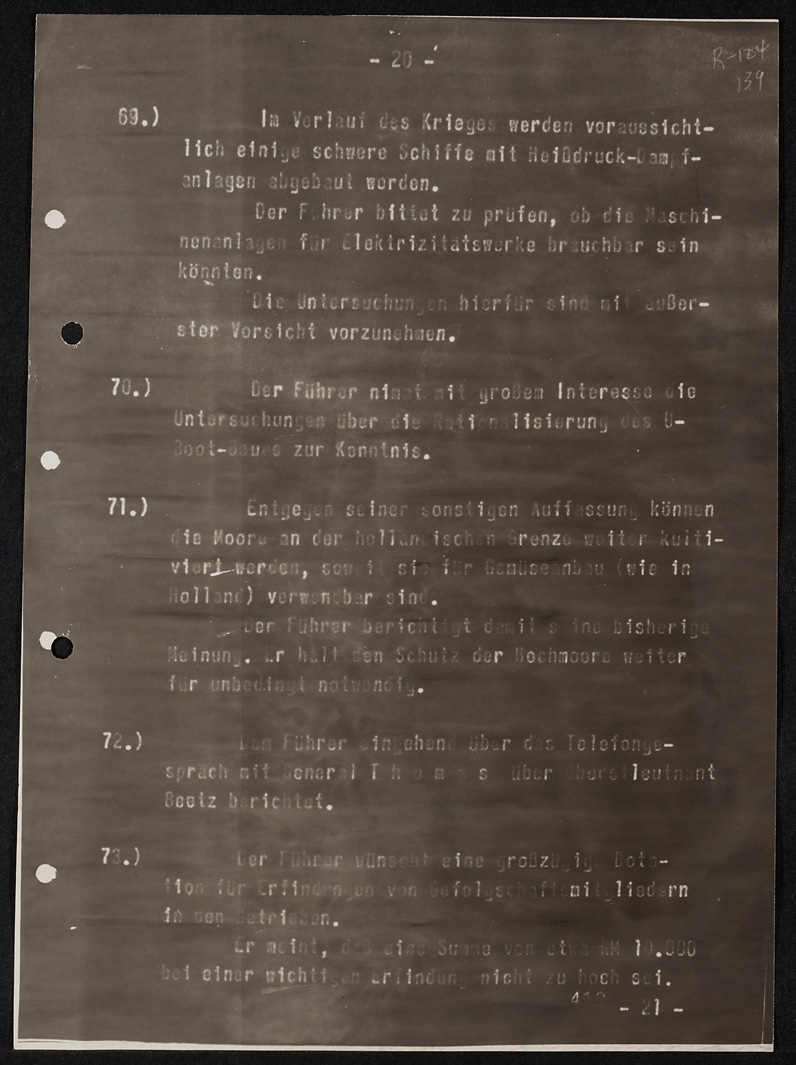 - 20 -
R-124
139
69.) Im Verlauf des Krieges werden voraussicht-
lich einige schwere Schiffe mit Heißdruck-Dampf-
anlagen abgebaut werden.
Der Führer bittet zu prüfen, ob die Maschi-
nenanlagen für Elektrizitätswerke brauchbar sein
könnten.
Die Untersuchungen hierfür sind mit äußer-
ster Vorsicht vorzunehmen.
70.) Der Führer nimmt mit großem Interesse die
Untersuchungen über die Rationalisierung des U-
Boot-Baues zur Kenntnis.
71.) Entgegen seiner sonstigen Auffassung können
die Moore an der holländischen Grenze weiter kulti-
viert werden, soweit sie für Gemüseanbau (wie in
Holland) verwendbar sind.
Der Führer berichtigt damit seine bisherige
Meinung. Er hält den Schutz der Hochmoore weiter
für unbedingt notwendig.
72.) Dem Führer eingehend über das Telefonge-
spräch mit General T h o m a s über Oberstleutnant
berichtet.
73.) Der Führer wünscht eine großzügige Dota-
tion für Erfindungen von Gefolgschaftsmitgliedern
in den Betrieben.
Er meint, daß eine Summe von etwa RM 10.000
bei einer wichtigen Erfindung nicht zu hoch sei.
- 21 -